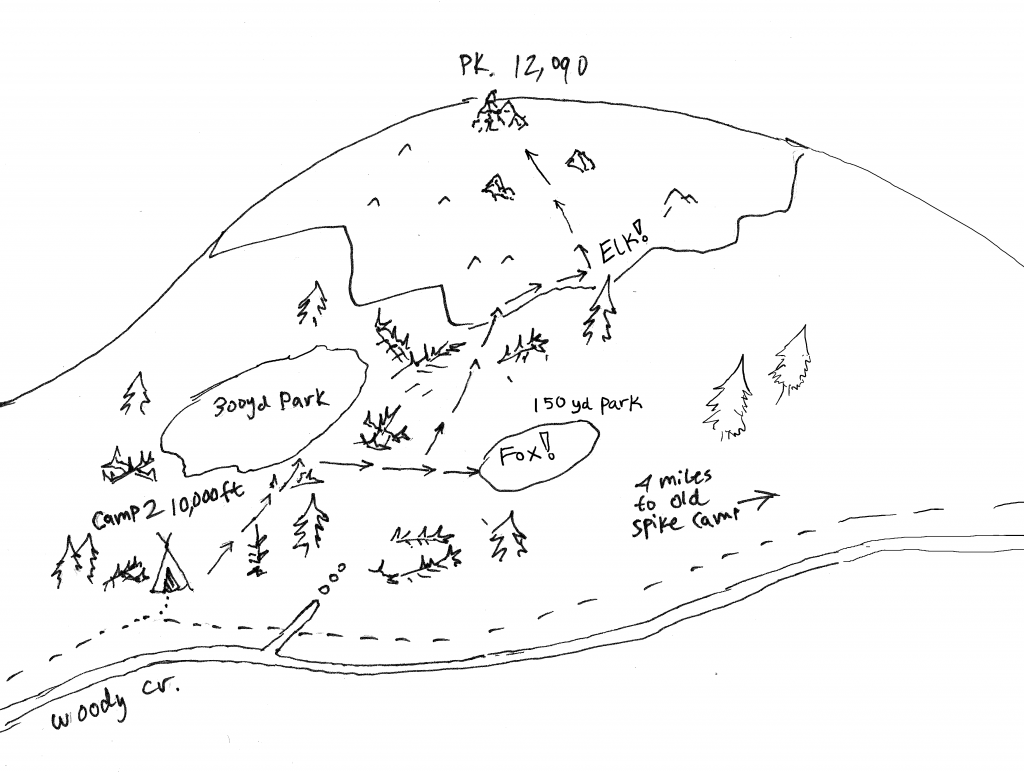 PK. 12,090
Elk!
300yd Park
150 yd park
Fox!
4 miles
to old
spike camp
Camp 2 10,000 ft
Woody Cr.